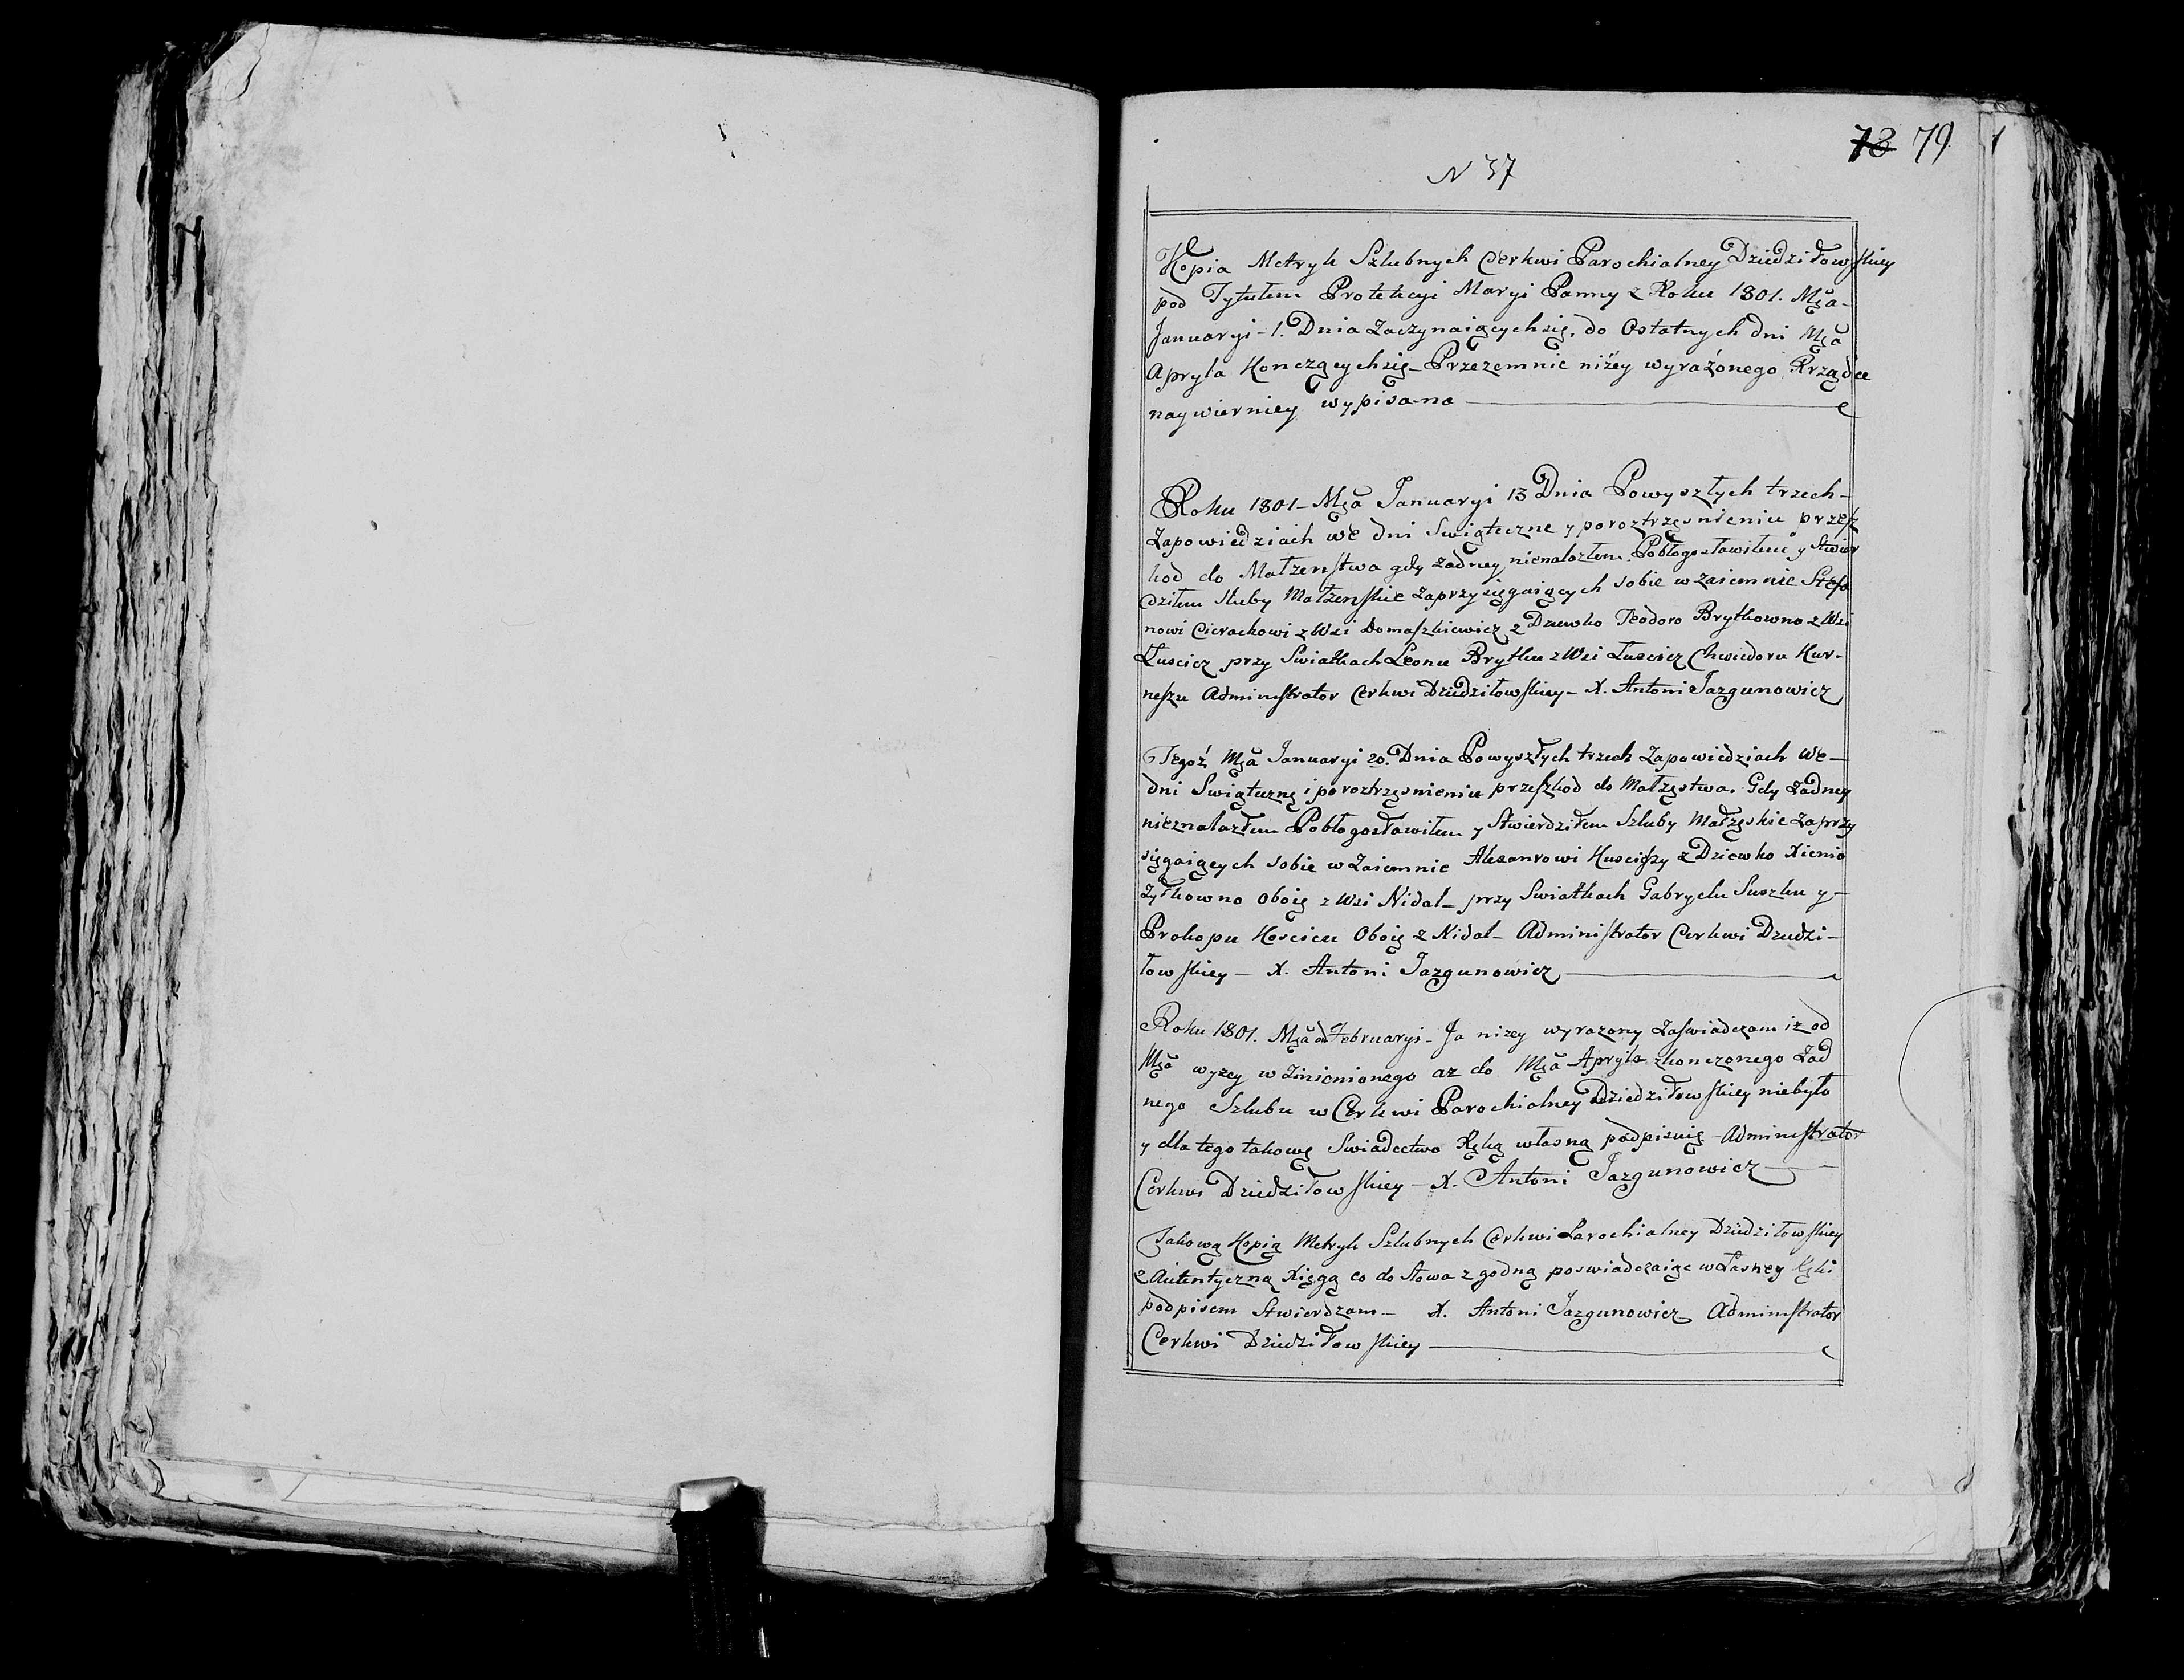 78 79
N 37
Kopia Metryk Szlubnych Cerkwi Parochialney Dziedziłowskiey
pod Tytułem Protekcyi Maryi Panny z Roku 1801. Mca
Januaryi - 1. Dnia Zaczynaiących się, do Ostatnych dni Mca
Apryla Konczących się - Przezemnie niżey wyrażonego Rządce
naywierniey wypisana
Roku 1801 - Mca Januaryi 13 Dnia Powyszłych trzech -
Zapowiedziach we dni Swiąteczne y poroztrzęsnieniu przesz
kod do Małzenstwa gdy zadney nienalazłem Pobłogosławiłem y Stwier
dziłem Sluby Małzenskie Zaprzysięgaiących sobie wzaiemnie Stefa
nowi Cierachowi z Wsi Domaszkiewicz z Dziewko Teodoro Brytkowno z Wsi
Łuscicz przy Swiatkach Leonu Brytku z Wsi Łuscicz Chwiedoru Kur-
neszu Administrator Cerkwi Dziedziłowskiey - X. Antoni Jazgunowicz
Tegoż Mca Januaryi 20. Dnia Powyszłych trzech Zapowiedziach We -
dni Swiąteczne i poroztrzęsnieniu przeszkod do Małzęstwa. Gdy Zadney
nieznalazłem Pobłogosławiłem y Stwierdziłem Szluby Małzęskie Zaprzy
sięgaiących sobie w Zaiemnie Alexanrowi z Dziewko Xienio
Zyłkowno oboię z Wsi Nidal - przy Swiatkach Gabryelu Suszku y -
Prokopu Koscicu Oboię z Nidal - Administrator Cerkwi Dziedzi -
łowskiey - X. Antoni Jazgunowicz
Roku 1801. Mca od Februaryi - Ja nizey wyrazony Zaswiadczam iz od
Mca wyzey w Zmienionego az do Mca Apryla zkonczonego Zad
nego Szlubu w Cerkwi Parochialney Dziedziłowskiey niebyło
y dla tego takowę Swiadectwo Ręką własną podpisuię - Administrator
Cerkwi Dziedziłowskiey - X. Antoni Jazgunowicz
Takową Kopią Metryk Szlubnych Cerkwi Parochialney Dziedziłowskiey
z Autentyczną Xięgą co do Słowa zgodną poswiadczaiąc własney Ręki
podpisem Stwierdzam - X. Antoni Jazgunowicz Administrator
Cerkwi Dziedziłowskiey